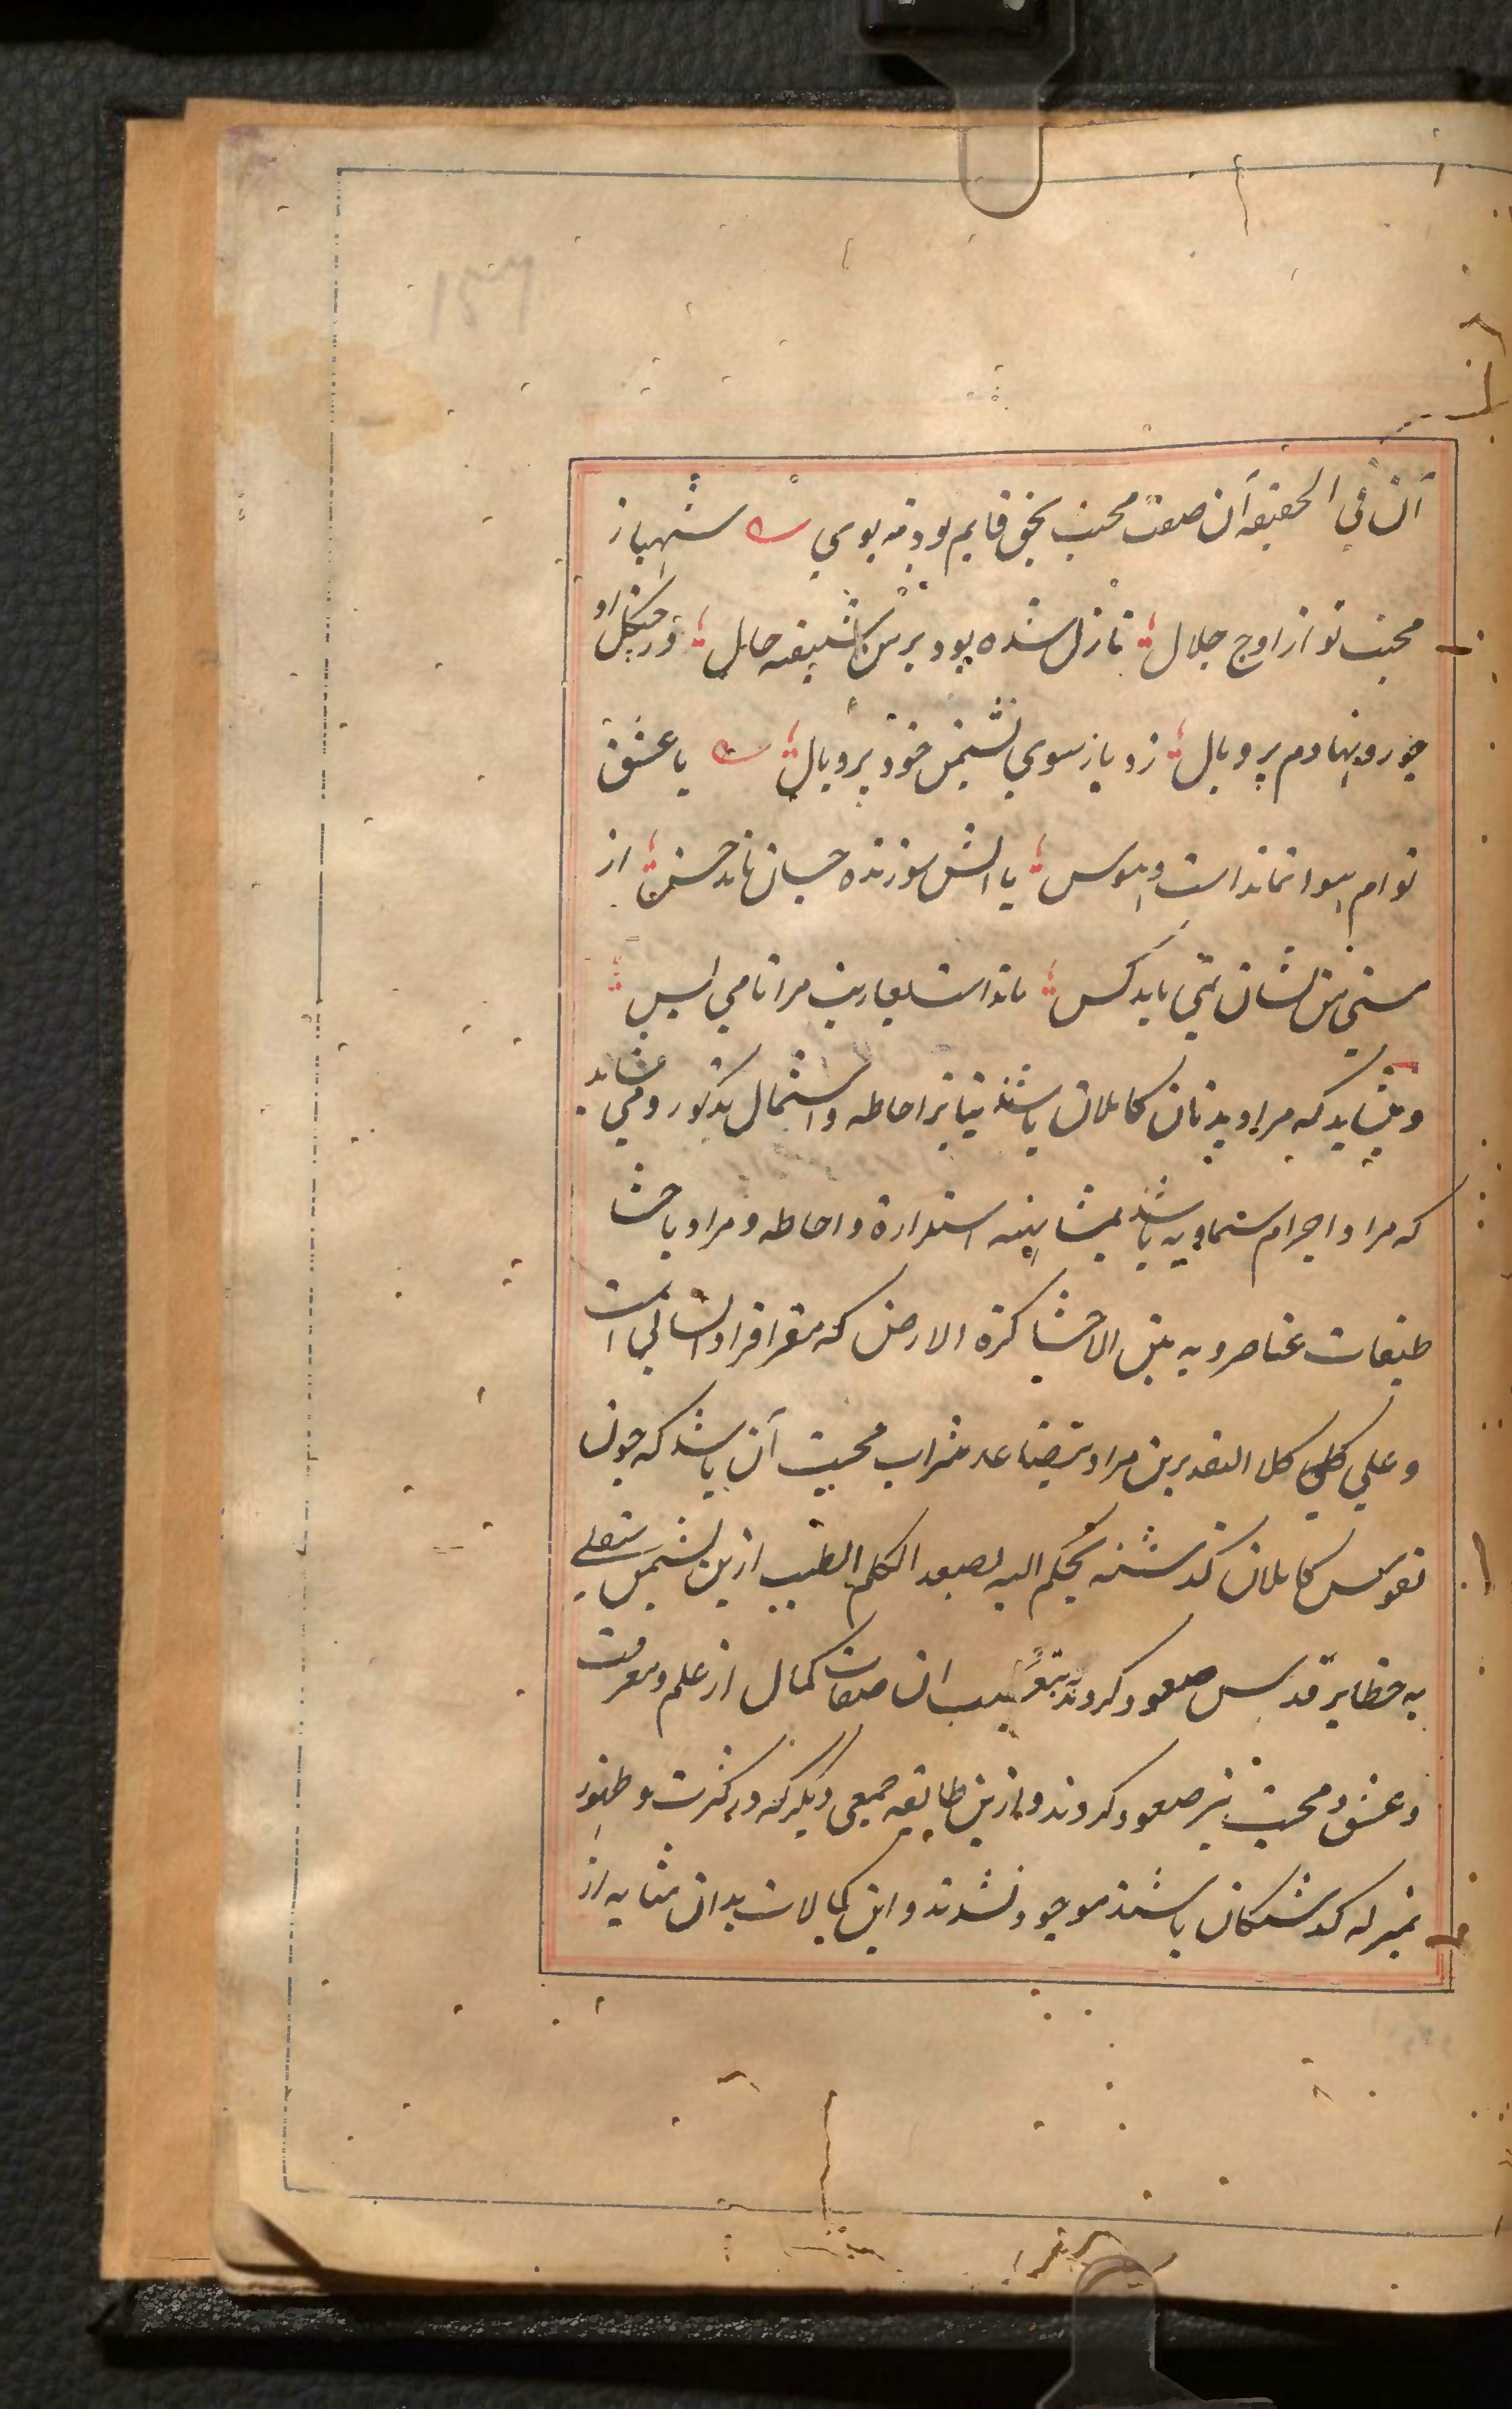 آن في الحقیقه آن صفت محبت بحق قایم بود نه بوي شهباز
محبت تو از اوج جلال نازل شده بود بر من شیفته حال در چنگل او
چو رو نهادم پر و بال زد باز سوي نشیمن خود پر و بال با عشق
توام هوا نمانداست و هوس با آتش سوزنده چسان ماند خس از
هستي من نشان نمي یابد کس مانداست بعاریت مرا نامي و بس
و میشاید که مراد بدنان کاملان باشند بنابر احاطه و اشتمال مذکور و مي شاید
که مراد اجرام سماویه باشد بمشابهه استدارة و احاطه و مراد باحشا
طبقات عناصر و به بین الاحشا کرة الارض که مقر افراد انساني است
و علي کلي کل التقدیرین مراد بتصاعد شراب محبت آن باشد که چون
نفوس کاملان گذشته بحکم الیه یصعد الکلم الطیب ازین نشیمن سفلي
به حظایر قدس صعود کردند بتبعیت ان صفات کمال از علم و معرفت
و عشق و محبت نیز صعود کردند و ازین طایفه جمعي دیگر که در کثرت و ظهور
بمنزله گذشتگان باشند موجود نشدند و این کمالات بدان مثابه از